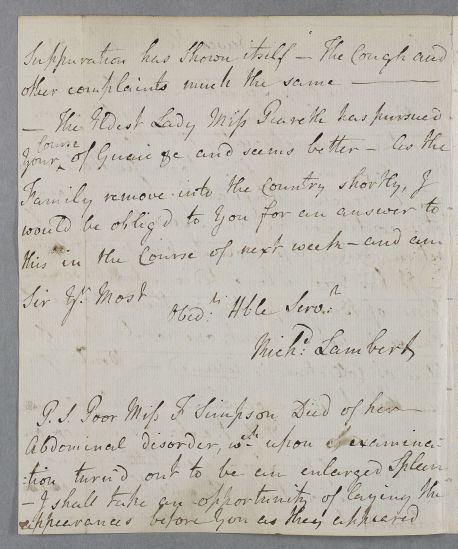 Suppuration has shown itself — The Cough and
other complaints much the same —
— The Eldest Lady Miss Peareth has pursued
Course
Your ^ of Guaic &c and seems better — As the
Family remove into the Country shortly, I
would be oblig'd to You for an answer to
this in the Course of next week — and am
Sir Yr. Most
Obed.t Hble Serv.t
Mich.d Lambert
P.S Poor Miss F Simpson Died of her
Abdominal disorder, wch upon examina:
:tion turn'd out to be an enlarged Spleen
— I shall take an opportunity of laying the
appearances before You as they appeared